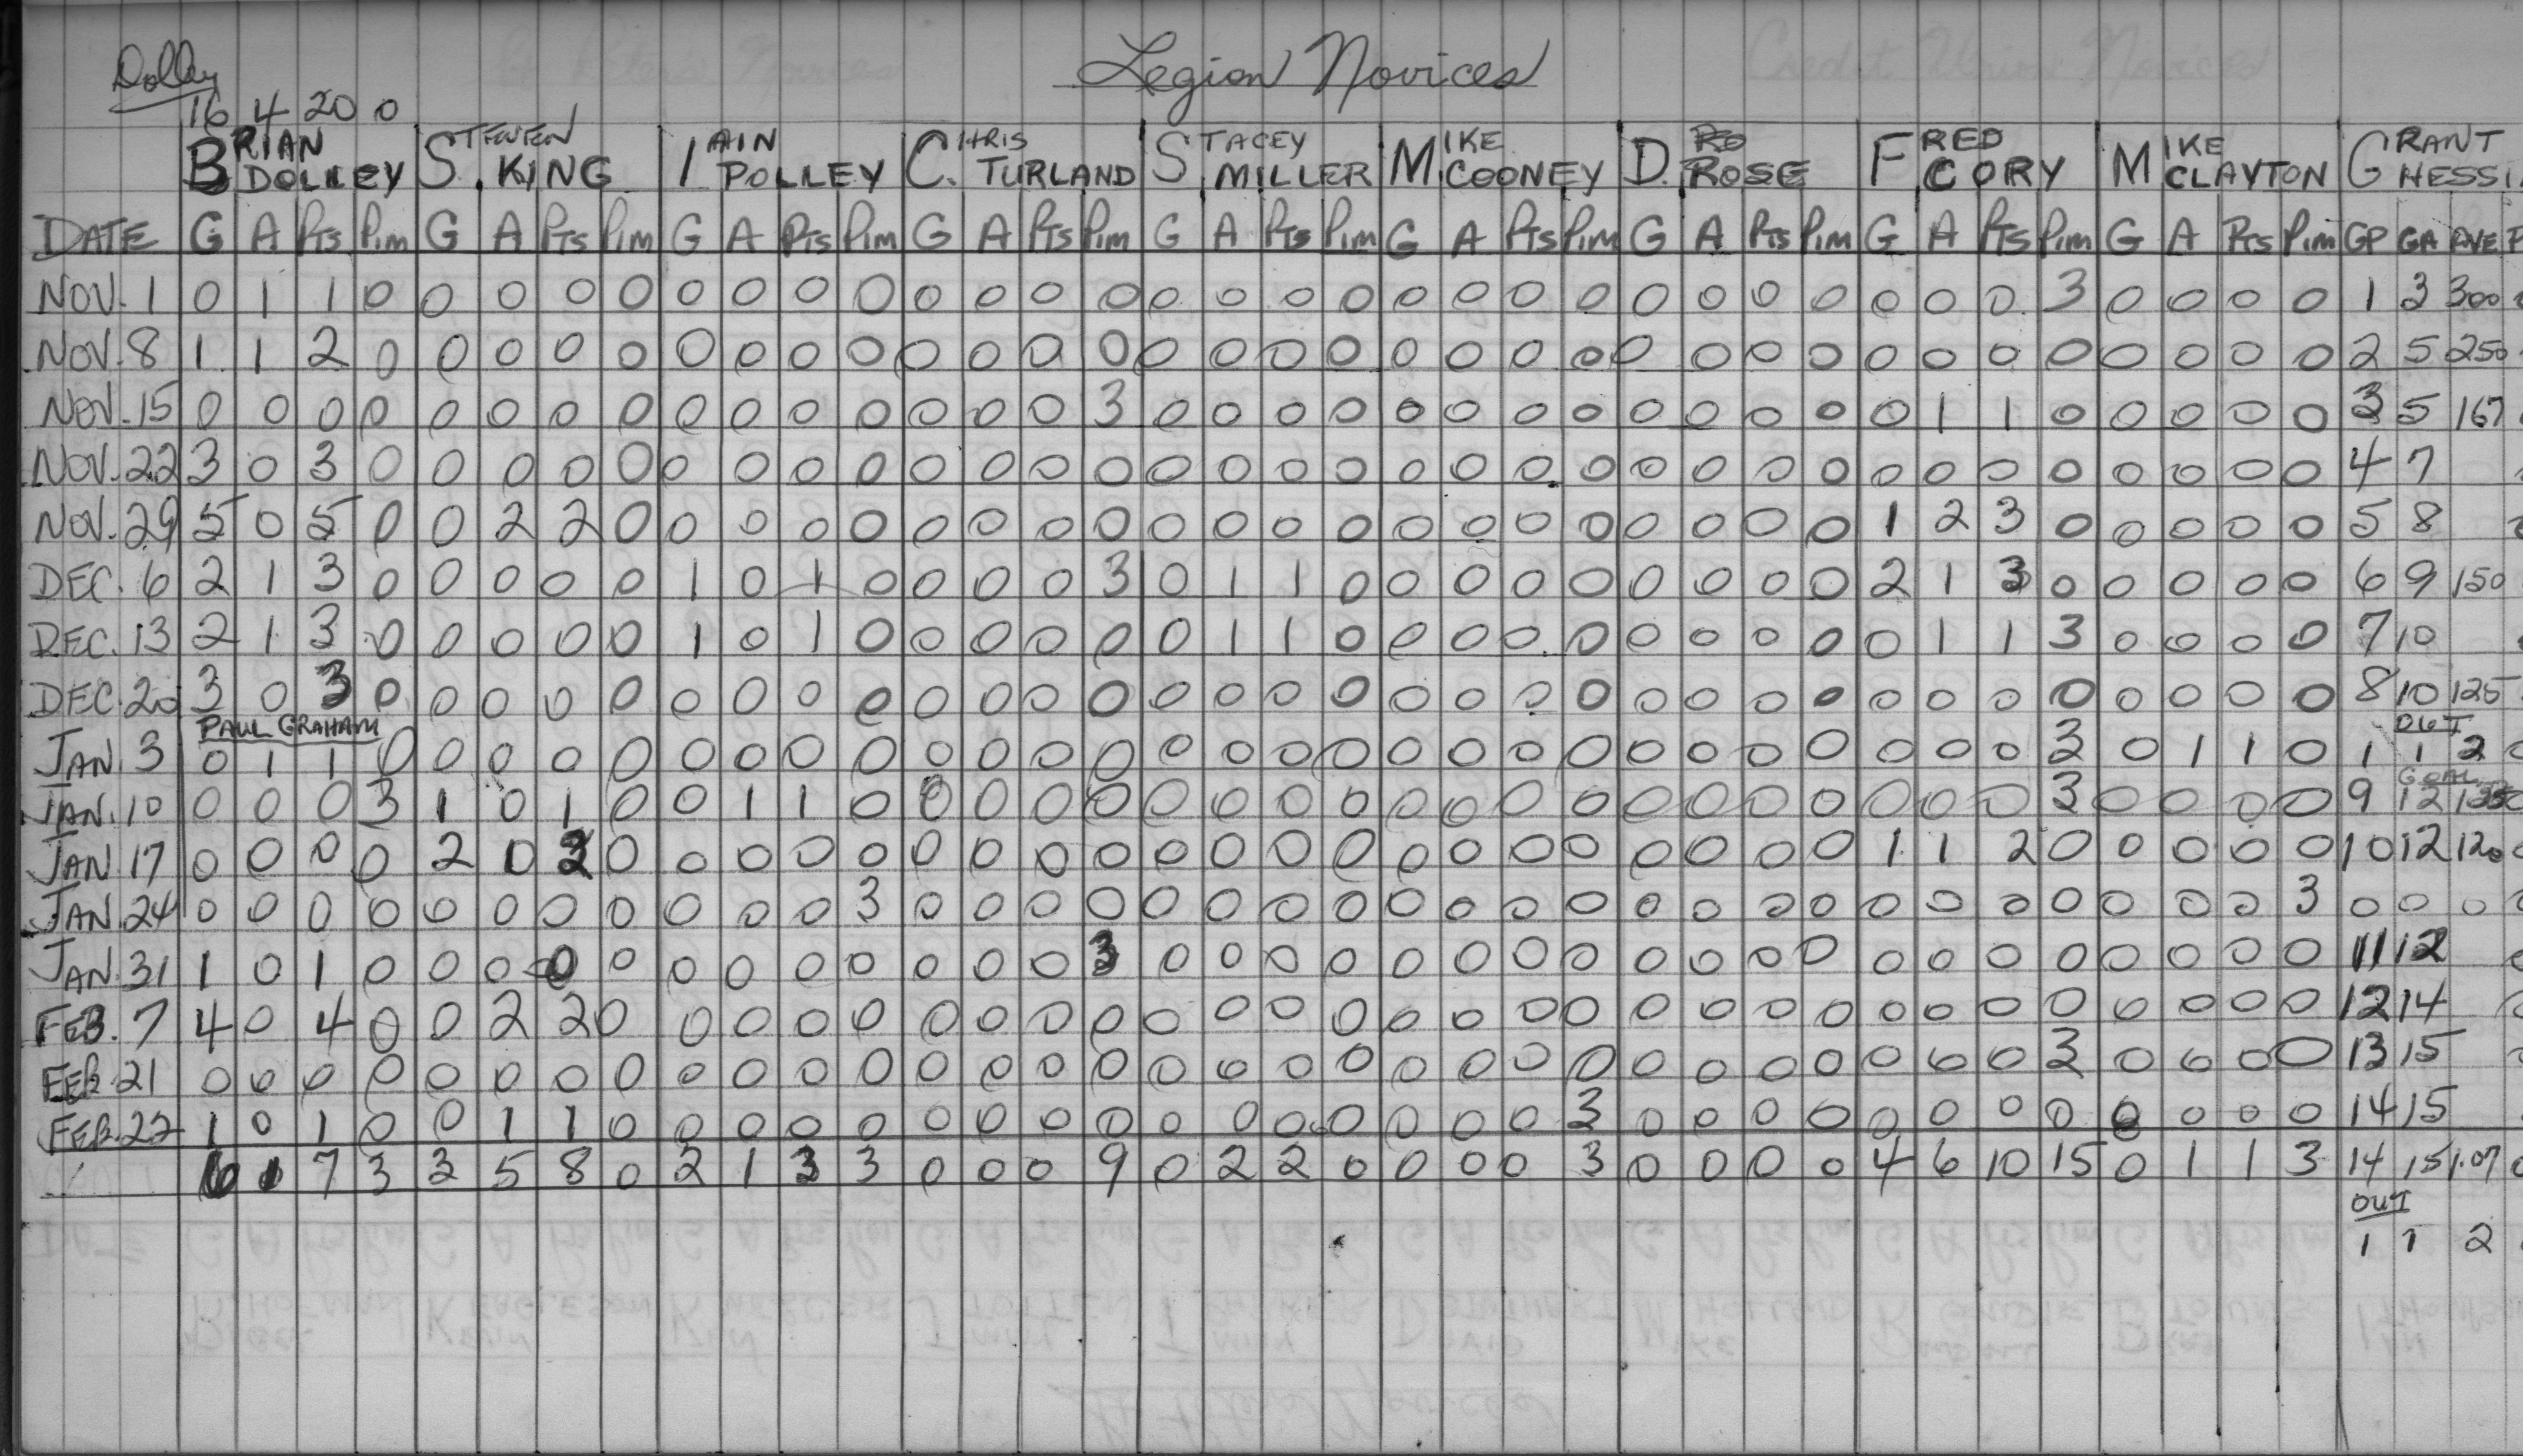 Dolley
Legion Novices
16 4 20 0
BRIAN DOLLEY STEVEN KING IAIN POLLEY CHRIS TURLAND STACEY MILLER MIKE COONEY D. ROSE FRED CORY MIKE CLAYTON GRANT HESSI
DATE G A Pts Pim G A Pts Pim G A Pts Pim G A Pts Pim G A Pts Pim G A Pts Pim G A Pts Pim G A Pts Pim G A Pts Pim GP GA AVE P
NOV. 1 0 1 1 0 0 0 0 0 0 0 0 0 0 0 0 0 0 0 0 0 0 0 0 0 0 0 0 0 0 0 0 3 0 0 0 0 1 3 300
NOV. 8 1 1 2 0 0 0 0 0 0 0 0 0 0 0 0 0 0 0 0 0 0 0 0 0 0 0 0 0 0 0 0 0 0 0 0 0 2 5 250
NOV. 15 0 0 0 0 0 0 0 0 0 0 0 0 0 0 0 3 0 0 0 0 0 0 0 0 0 0 0 0 0 1 1 0 0 0 0 0 3 5 167
NOV. 22 3 0 3 0 0 0 0 0 0 0 0 0 0 0 0 0 0 0 0 0 0 0 0 0 0 0 0 0 0 0 0 0 0 0 0 0 4 7
NOV. 29 5 0 5 0 0 2 2 0 0 0 0 0 0 0 0 0 0 0 0 0 0 0 0 0 0 0 0 0 1 2 3 0 0 0 0 0 5 8
DEC. 6 2 1 3 0 0 0 0 0 1 0 1 0 0 0 0 3 0 1 1 0 0 0 0 0 0 0 0 0 2 1 3 0 0 0 0 0 6 9 150
DEC. 13 2 1 3 0 0 0 0 0 1 0 1 0 0 0 0 0 0 1 1 0 0 0 0 0 0 0 0 0 0 1 1 3 0 0 0 0 7 10
DEC. 20 3 0 3 0 0 0 0 0 0 0 0 0 0 0 0 0 0 0 0 0 0 0 0 0 0 0 0 0 0 0 0 0 0 0 0 0 8 10 125
PAUL GRAHAM OUT
JAN. 3 0 1 1 0 0 0 0 0 0 0 0 0 0 0 0 0 0 0 0 0 0 0 0 0 0 0 0 0 0 0 0 3 0 1 1 0 1 1 2
GOAL
JAN. 10 0 0 0 3 1 0 1 0 0 1 1 0 0 0 0 0 0 0 0 0 0 0 0 0 0 0 0 0 0 0 0 3 0 0 0 0 9 12
JAN 17 0 0 0 0 2 0 2 0 0 0 0 0 0 0 0 0 0 0 0 0 0 0 0 0 0 0 0 0 1 1 2 0 0 0 0 0 10 12 120
JAN 24 0 0 0 0 0 0 0 0 0 0 0 3 0 0 0 0 0 0 0 0 0 0 0 0 0 0 0 0 0 0 0 0 0 0 0 3 0 0 0
JAN. 31 1 0 1 0 0 0 0 0 0 0 0 0 0 0 0 3 0 0 0 0 0 0 0 0 0 0 0 0 0 0 0 0 0 0 0 0 11 12
FEB. 7 4 0 4 0 0 2 2 0 0 0 0 0 0 0 0 0 0 0 0 0 0 0 0 0 0 0 0 0 0 0 0 0 0 0 0 0 12 14
FEB. 21 0 0 0 0 0 0 0 0 0 0 0 0 0 0 0 0 0 0 0 0 0 0 0 0 0 0 0 0 0 0 0 3 0 0 0 0 13 15
FEB. 22 1 0 1 0 0 1 1 0 0 0 0 0 0 0 0 0 0 0 0 0 0 0 0 3 0 0 0 0 0 0 0 0 0 0 0 0 14 15
6 1 7 3 3 5 8 0 2 1 3 3 0 0 0 9 0 2 2 0 0 0 0 3 0 0 0 0 4 6 10 15 0 1 1 3 14 15 1.07
OUT
1 1 2